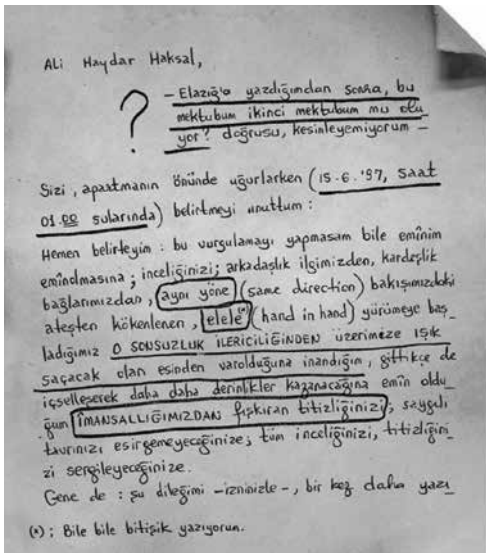 Ali Haydar Haksal,
?
– Elazığ'a yazdığımdan sonra, bu
mektubum ikinci mektubum mu olu
yor? doğrusu, kesinleyemiyorum –
Sizi, apartmanın önünde uğurlarken (15.6.'97, saat
01.00 sularında) belirtmeyi unuttum:
Hemen belirteyim: bu vurgulamayı yapmasam bile eminim
emindmasına; inceliğinizi; arkadaşlık ilgimizden, kardeşlik
bağlarımızdan, aynı yöne (same direction) bakışımızdaki
ateşten kökenlenen, elele(*) (hand in hand) yürümeye baş_
ladığımız O SONSUZLUK İLERİCİLİĞİNDEN üzerimize ışık
saçacak olan esinden varolduğuna inandığım, gittikçe de
içselleşerek daha daha derinlikler kazanacağına emin oldu_
ğum İMANSALLIĞIMIZDAN fışkıran titizliğinizi; saygılı
tavrınızı esirgemeyeceğinize; tüm inceliğinizi, titizliğini_
zi sergileyeceğinize.
Gene de: şu dileğimi –izninizle–, bir kez daha yazı_
(*): Bile bile bitişik yazıyorum.